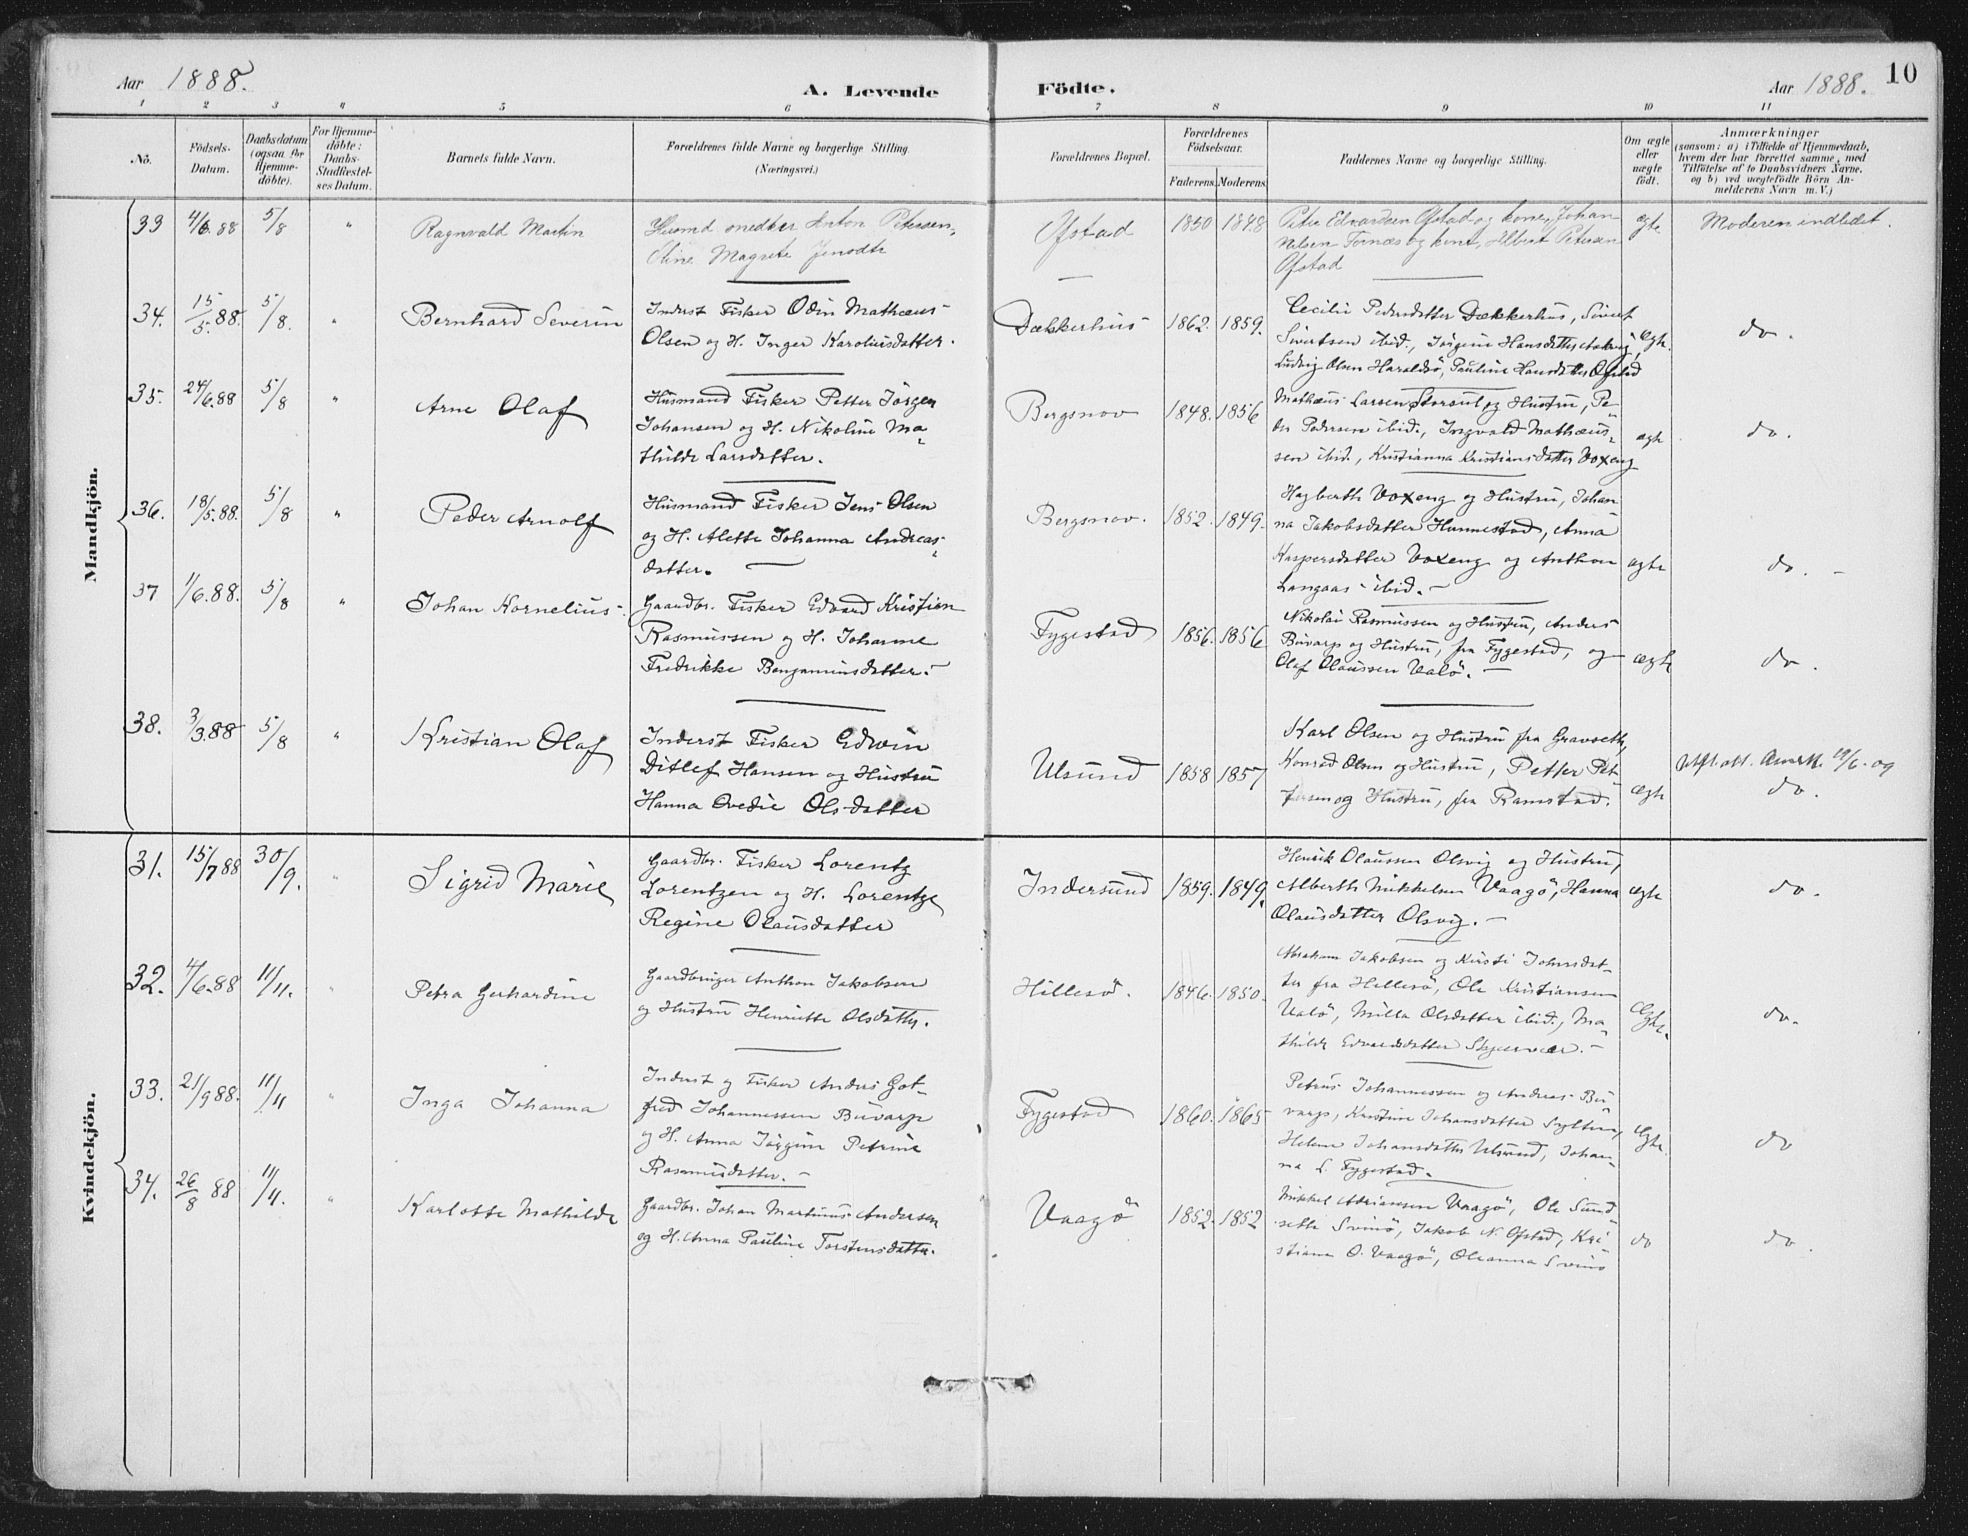 Aar 1888.
A. Levende
Födte.
Aar 1888.
10
1 2 3 4 5 6 7 8 9 10 11
No.
Födsels-
Datum.
Daabsdatum
(ogsaa for
Hjemme-
döbte).
For Hjemme-
döbte:
Daabs-
Stadfæstel-
ses Datum.
Barnets fulde Navn.
Forældrenes fulde Navne og borgerlige Stilling
(Næringsvei.)
Forældrenes Bopæl.
Forældrenes
Födselsaar.
Faderens. Moderens.
Faddernes Navne og borgerlige Stilling.
Om ægte
eller
uægte
födt.
Anmærkninger
(saasom: a) i Tilfælde af Hjemmedaab,
hvem der har forrettet samme, med
Tilföielse af to Daabsvidners Navne.
og b) ved uægtefödte Börn An-
melderens Navn m. V.)
Mandkjön.
33 4/6.88 5/8 " Ragnvald Martin
Husmd snedker Anton Petersen,
Oline Magrete Jensdtr
Ofstad 1850 1848
Peter Edvardsen Ofstad og kone, Johan
Nilsen Tornæs og kone, Albert Petersen
Ofstad
ægte Moderen indledet.
34. 15/5 88. 5/8. " Bernhard Severin
Inderst Fisker Odin Mathæus
Olsen og H. Inger Karoliusdatter.
Dækkerhus 1862. 1859.
Cecilie Pedersdatter Dækkerhus, Sivert
Sivertsen ibid., Jörgine Hansdatter
Ludvig Olsen Haraldsö, Pauline Hansdatter Ofstad
Ægte. do.
35. 24/6.88 5/8 " Arne Olaf
Husmand Fisker Petter Jörgen
Johansen og H. Nikoline Ma-
thilde Larsdatter.
Bergsnov 1848. 1856
Mathæus Larsen Storsul og Hustru, Pe-
der Pedersen ibid., Ingvald Mathæus-
sen ibid., Kristianna Kristiansdatter Voxeng
ægte do.
36. 18/5.88. 5/8 " Peder Arnolf
Husmand Fisker Jens Olsen
og H. Alette Johanna Andreas-
datter.
Bergsnov. 1852. 1849.
Hagberth Voxeng og Hustru, Johan
na Jakobsdatter Hunnestad, Anna
Kaspersdatter Voxeng og Anthon
Langaas ibid.
ægte do.
37 1/6.88. 5/8 " Johan Kornelius
Gaardbr. Fisker Edvard Kristian
Rasmussen og H. Johanne
Fredrikke Benjaminsdatter.
Fygestad 1856. 1856
Nikolai Rasmussen og Hustru, Anders
Buvarp og Hustru, fra Fygestad, og
Olaf Olaussen Valö.
ægte do.
38. 3/3.88 5/8 " Kristian Olaf
Inderst Fisker Edwin
Ditlef Hansen og Hustru
Hanna Ovedie Olsdatter
Ulsund 1858 1857
Karl Olsen og Hustru fra Gravseth,
Konrad Olsen og Hustru, Petter Pet-
tersen og Hustru, fra Ramstad.
ægte Utft. att. Amerk. 19/6-09
do.
Kvindekjön.
31. 15/7 88 30/9. " Sigrid Marie
Gaardbr. Fisker Lorentz
Lorentzen og H. Lorentze
Regine Olausdatter
Indersund 1859. 1849.
Henrik Olaussen Olsvig og Hustru,
Alberth Mikkelsen Vaagö, Hanna
Olausdatter Olsvig.
ægte do.
32. 4/6.88 11/11. " Petra Gerhardine
Gaardbruger Anthon Jakobsen
og Hustru Henriette Olsdatter.
Hillesö. 1846. 1850.
Abraham Jakobsen og Kirsti Johnsdat-
ter fra Hillesö, Ole Kristiansen
Valö, Milla Olsdatter ibid., Ma-
thilde Edvardsdatter Skjærvær.
Ægte. do.
33. 21/9 88. 11/11 " Inga Johanna
Inderst og Fisker Anders Got-
fred Johannessen Buvarp
og H. Anna Jörgine Petrine
Rasmusdatter.
Fygestad 1860. 1865
Petrus Johannessen og Andreas Bu-
varp, Kristine Johansdatter
Helene Johansdatter Ulsund, Johan-
na L. Fygestad.
Ægte. do
34. 26/8 88 11/11. " Karlotte Mathilde
Gaardbr. Johan Martinus Andersen
og H. Anna Pauline Torstensdatter.
Vaagö 1852. 1852
Mikkel Adriansen Vaagö, Ole Sund-
seth Svinö, Jakob N. Ofstad, Kri-
stiane O. Vaagö, Oleanna Svinö
do do.